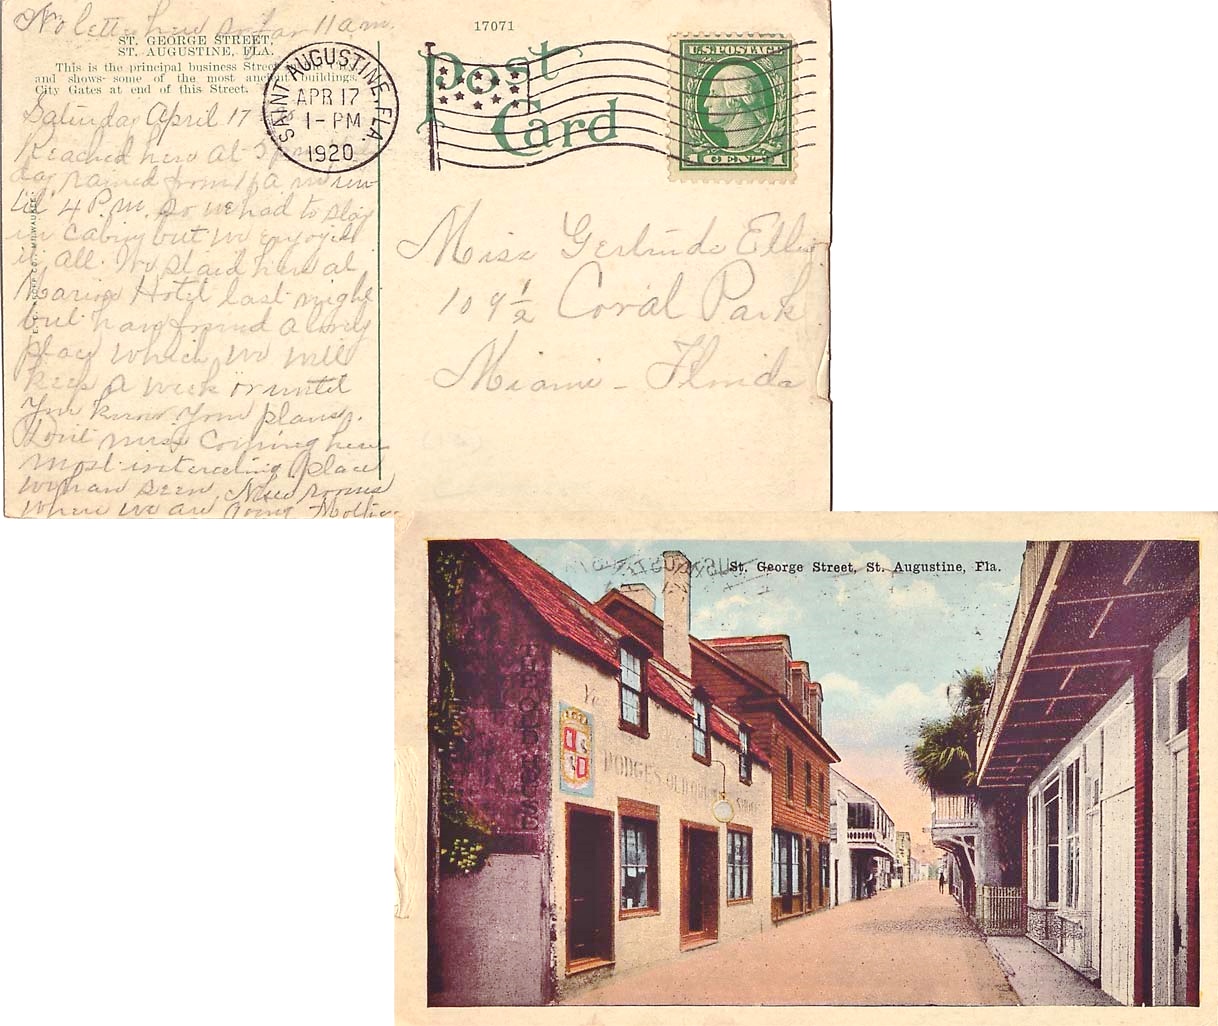 No letter here so far 11 a m.
17071
ST. GEORGE STREET,
ST. AUGUSTINE, FLA.
This is the principal business Street
and shows some of the most ancient buildings.
City Gates at end of this Street.
Post
Card
SAINT AUGUSTINE, FLA.
APR 17
1-PM
1920
U.S. POSTAGE
1 CENT 1
Saturday April 17
Reached here at 5 p m
day rained from 11 a m
til 4 P.M. so we had to stay
in cabin but we enjoyed
it all. We staid here at
Marion Hotel last night
but have found a lovely
place which we will
keep a week or until
you know your plans.
Don't miss coming here
most interesting place
we have seen. Nice rooms
where we are going Mother
Miss Gertrude Ellis
109 ½ Coral Park
Miami - Florida
MILWAUKEE
St. George Street, St. Augustine, Fla.
THE OLD HOUSE
Ye
DODGE'S OLD CURIOSITY SHOP